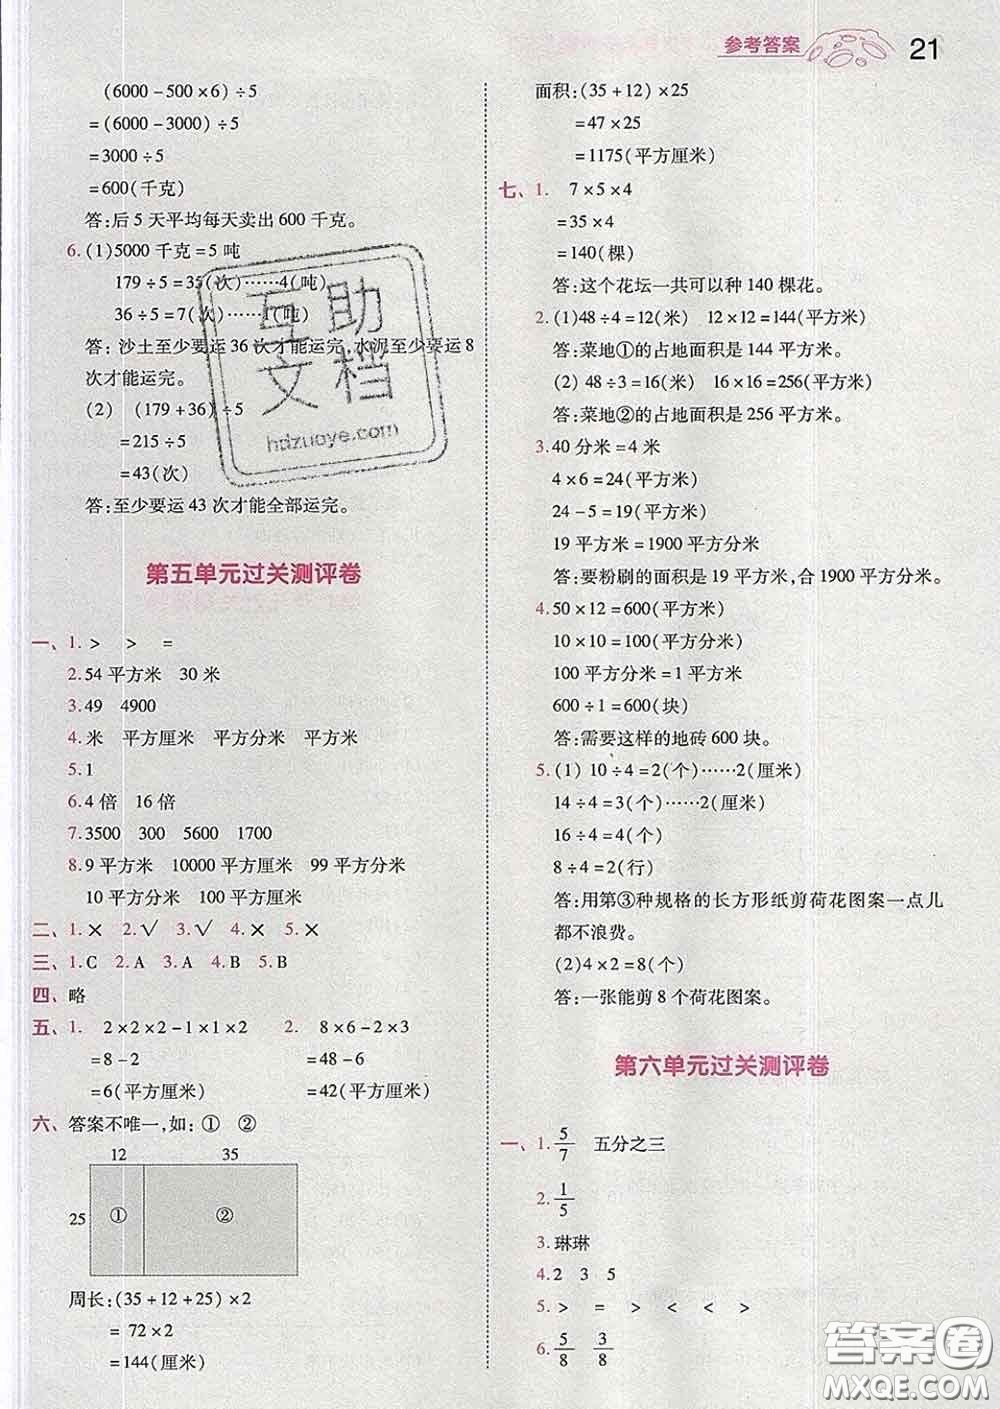 参考答案 21
(6000-500×6)÷5
=(6000-3000)÷5
=3000÷5
=600(千克)
答:后5天平均每天卖出600千克。
6.(1)5000千克=5吨
179÷5=35(次)……4(吨)
36÷5=7(次)……1(吨)
答:沙土至少要运36次才能运完,水泥至少要运8
次才能运完。
(2) (179+36)÷5
=215÷5
=43(次)
答:至少要运43次才能全部运完。
第五单元过关测评卷
一、1. > > =
2.54平方米 30米
3.49 4900
4.米 平方厘米 平方分米 平方米
5.1
6.4倍 16倍
7.3500 300 5600 1700
8.9平方米 10000平方厘米 99平方分米
10平方分米 100平方厘米
二、1.× 2.√ 3.√ 4.× 5.×
三、1.C 2.A 3.A 4.B 5.B
四、略
五、1. 2×2×2-1×1×2 2. 8×6-2×3
=8-2 =48-6
=6(平方厘米) =42(平方厘米)
六、答案不唯一,如:① ②
12 35
25 ① ②
周长:(35+12+25)×2
= 72×2
=144(厘米)
面积:(35+12)×25
=47×25
=1175(平方厘米)
七、1. 7×5×4
=35×4
=140(棵)
答:这个花坛一共可以种140棵花。
2.(1)48÷4=12(米) 12×12=144(平方米)
答:菜地①的占地面积是144平方米。
(2)48÷3=16(米) 16×16=256(平方米)
答:菜地②的占地面积是256平方米。
3.40分米=4米
4×6=24(平方米)
24-5=19(平方米)
19平方米=1900平方分米
答:要粉刷的面积是19平方米,合1900平方分米。
4.50×12=600(平方米)
10×10=100(平方分米)
100平方分米=1平方米
600÷1=600(块)
答:需要这样的地砖600块。
5.(1) 10÷4=2(个)……2(厘米)
14÷4=3(个)……2(厘米)
16÷4=4(个)
8÷4=2(行)
答:用第③种规格的长方形纸剪荷花图案一点儿
都不浪费。
(2)4×2=8(个)
答:一张能剪8个荷花图案。
第六单元过关测评卷
一、1. 5/7 五分之三
2. 1/5
3.琳琳
4.2 3 5
5. > = > < < >
6. 5/8 3/8
互助
文档
hdzuoye.com
答案圈
MXQE.COM